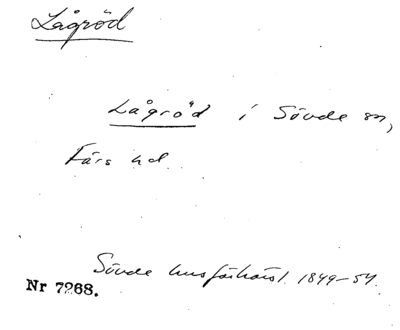 Lågröd
Lågröd i Sövde sn,
Färs hd.
Sövde husförhörsl. 1849-54.
Nr 7268.